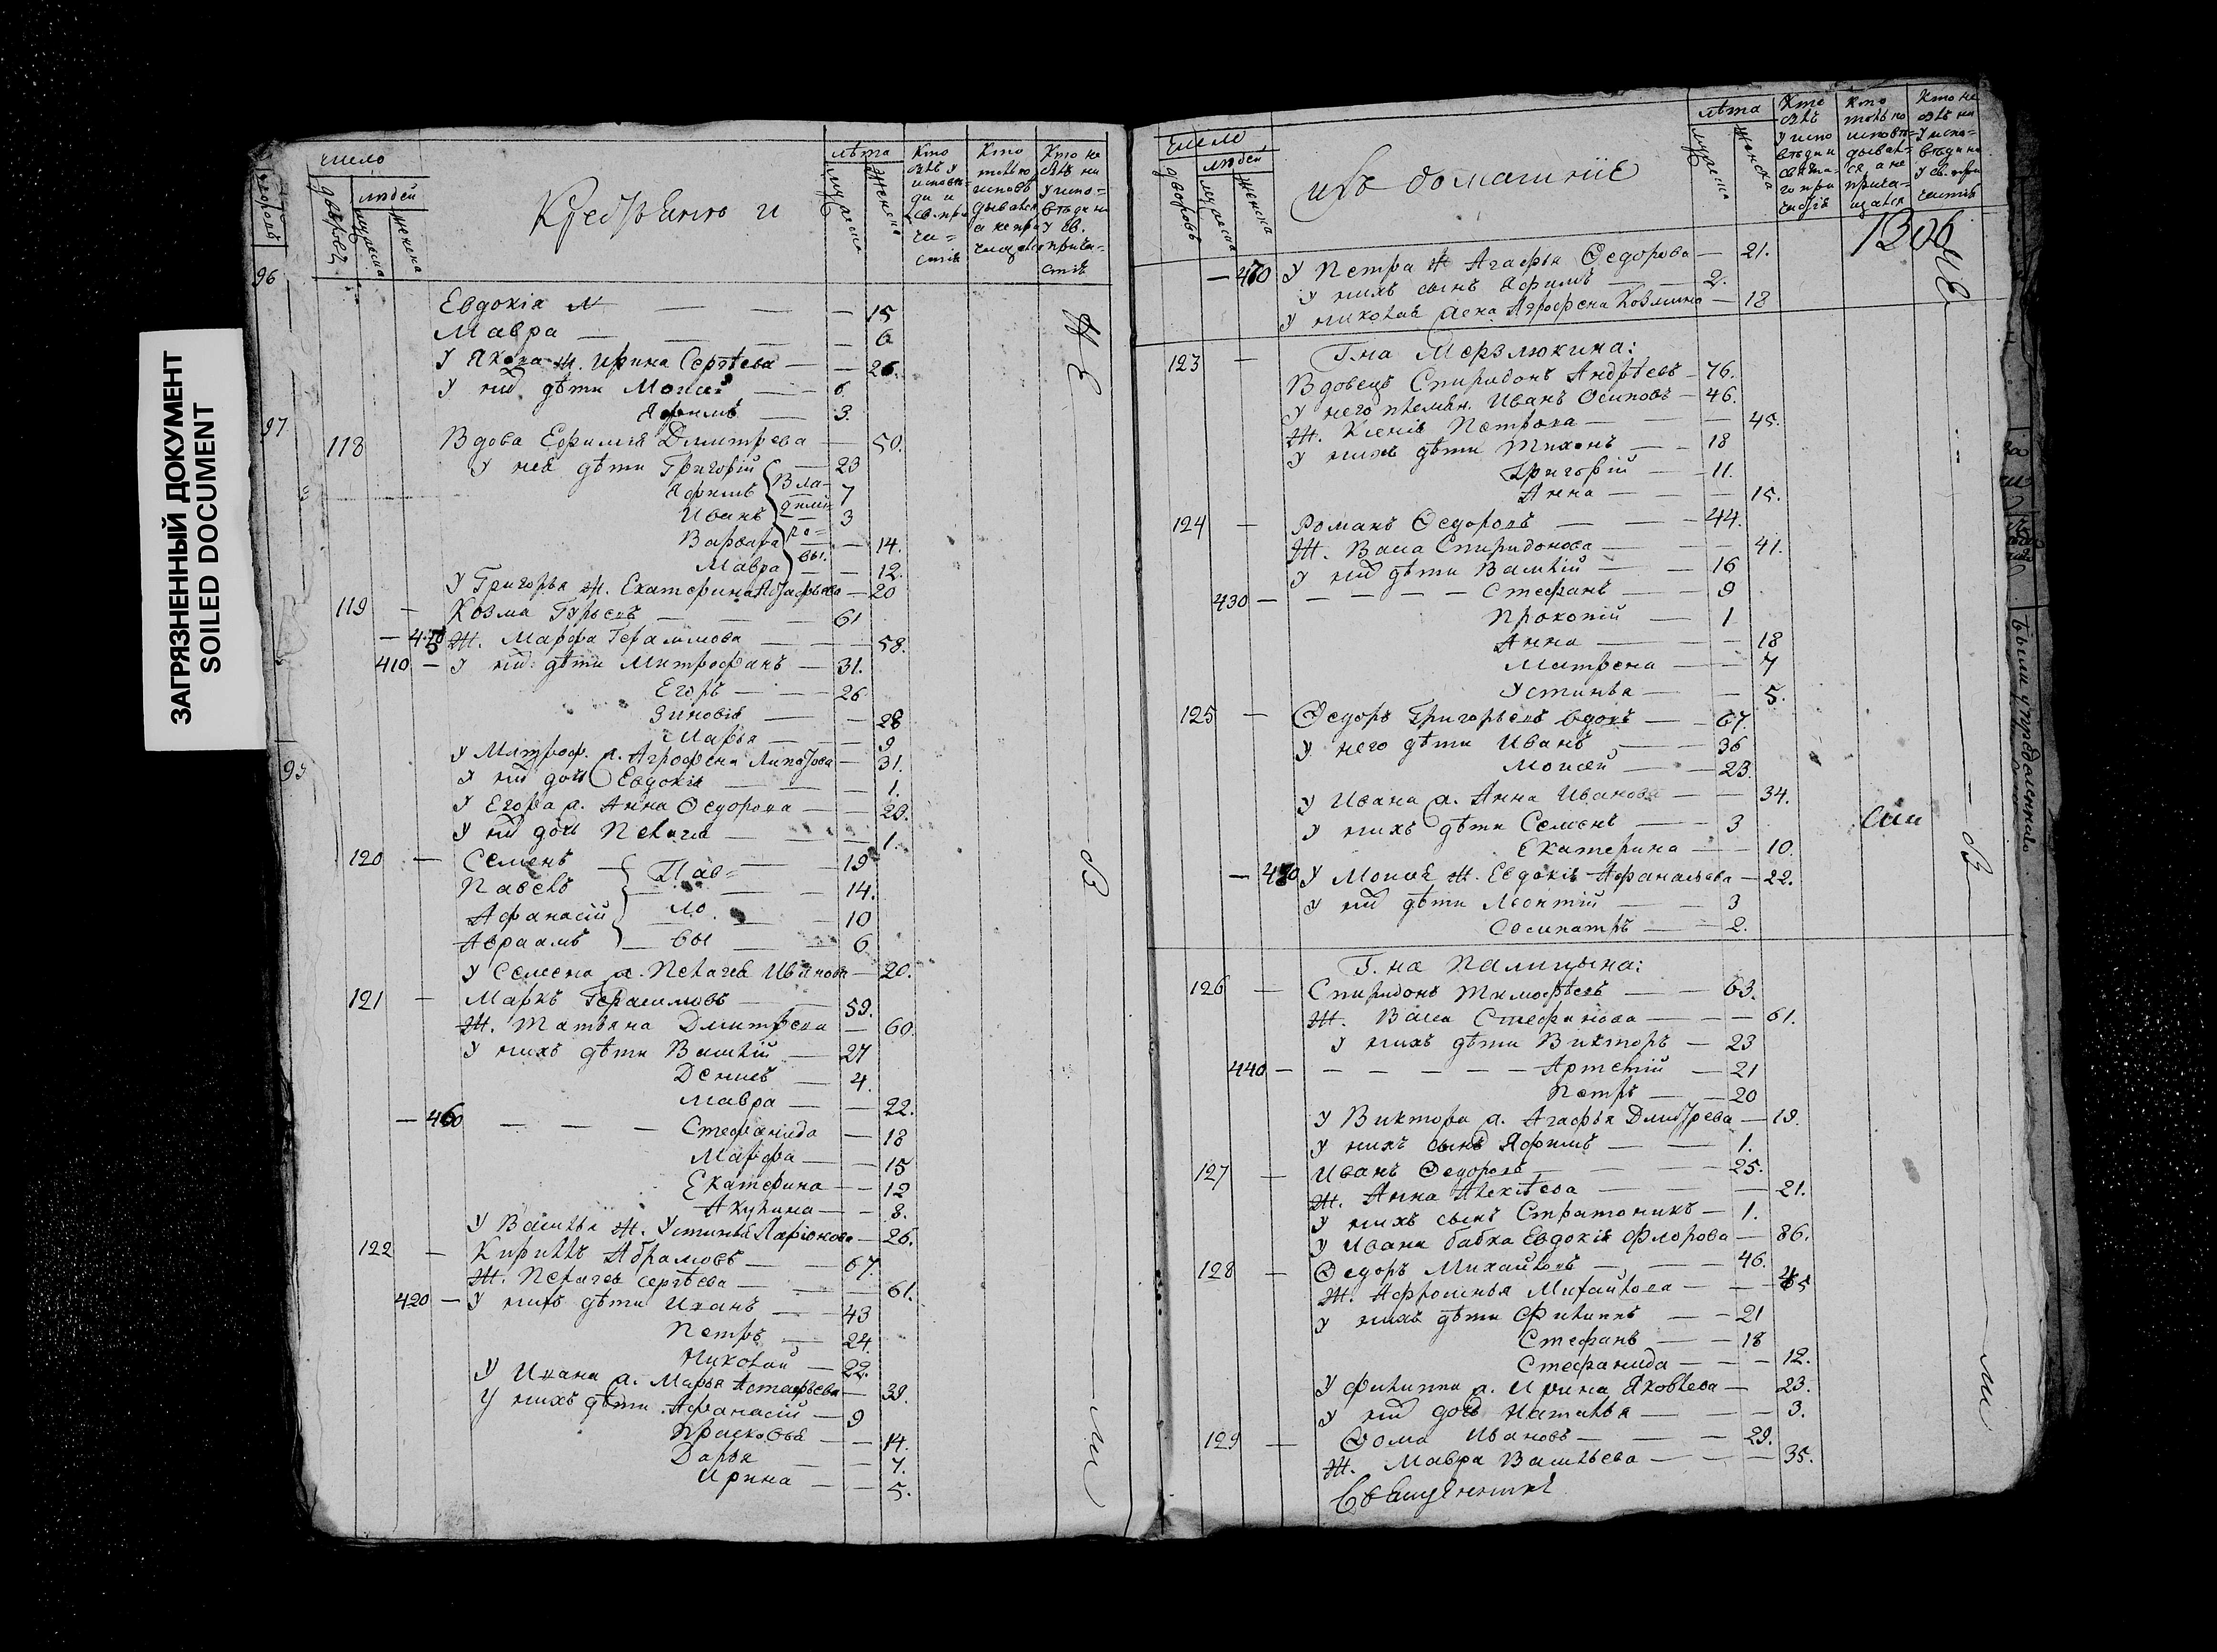 ЗАГРЯЗНЕННЫЙ ДОКУМЕНТ
SOILED DOCUMENT
96
97
число
дворовъ
людей
мужеска
женска
Крестьяне и
лѣта
мужеска
женска
Кто
Кто
Кто не
Евдокія — 15
Мавра — 6
У Якова ж. Ирина Сергѣева — 26.
У нихъ дѣти Моисей — 6
Яфимъ — 3.
118 Вдова Ефимія Дмитрева — 50.
У нея дѣти Григорій — 23
Яфимъ Вла- 7
Иванъ — 3
Варвара — 14.
Мавра вы. — 12.
У Григорья ж. Екатерина — 20
119 — Козма Гурьевъ — 61
Ж. Марфа Герасимова — 58.
410 — У нихъ дѣти Митрофанъ — 31.
Егоръ — 26
Зиновія — 28
Марья — 9
У Митроф. ж. Агрофена — 31.
У нихъ дочь Евдокія — 1.
У Егора ж. Анна Ѳедорова — 29.
У нихъ дочь Пелагея — 1.
120 — Семенъ Пав= 19
Павелъ — 14.
Афанасій ло 10
Авраамъ вы — 6
У Семена ж. Пелагея Иванова — 20.
121 — Маркъ Герасимовъ — 59.
Ж. Татьяна Дмитрева — 60.
У нихъ дѣти Василій — 27
Денисъ — 4.
Мавра — 22.
— 460 — — — Стефанида — 18
Марфа — 15
Екатерина — 12
Акулина — 8.
У Василья ж. Устинья Ларіонова — 26.
122 — Кирилъ Абрамовъ — 67.
Ж. Пелагея Сергѣева — 61.
420 — У нихъ дѣти Иванъ — 43
Петръ — 24.
Николай — 22.
У Ивана ж. Марья Астафьева — 39.
У нихъ дѣти Афанасій — 9
Прасковья — 14.
Дарья — 7.
Ирина — 5.
число
дворовъ
людей
мужеска
женска
ихъ домашніе
лѣта
мужеска
женска
Кто
Кто
Кто не
1306
— 470 У Петра ж Агафья Ѳедорова — 21.
У нихъ сынъ Яфимъ — 2.
У Николая жена Агрофена Козмина — 18
Г. на Мерзлюкина:
123 — Вдовецъ Спиридонъ Андрѣевъ — 76.
У него племян. Иванъ Осиповъ — 46.
Ж. Ксенія Петрова — 45.
У нихъ дѣти Тихонъ — 18
Григорій — 11.
Анна — 15.
124 — Романъ Ѳедоровъ — 44.
Ж. Васа Спиридонова — 41.
У нихъ дѣти Василій — 16
430 — — — — — Стефанъ — 9
Прокопій — 1
Анна — 18
Матрена — 7
Устинья — 5.
125 — Ѳедоръ Григорьевъ вдовъ — 67.
У него дѣти Иванъ — 36
Моисей — 23.
У Ивана ж. Анна Иванова — 34.
У нихъ дѣти Семенъ — 3
Екатерина — 10.
У Моисея ж. Евдокія Афанасьева — 22.
У нихъ дѣти Леонтій — 3
Сосипатръ — 2.
Г. на Палицына:
126 — Спиридонъ Тимофѣевъ — 63.
Ж. Васа Стефанова — 61.
У нихъ дѣти Викторъ — 23
440 — — — — — Артемій — 21
Петръ — 20
У Виктора ж. Агафья Дмитрева — 19.
У нихъ сынъ Яфимъ — 1.
127 — Иванъ Ѳедоровъ — 25.
Ж. Анна Алексѣева — 21.
У нихъ сынъ Стратоникъ — 1.
У Ивана бабка Евдокія Флорова — 86.
128 — Ѳедоръ Михайловъ — 46.
Ж. Афросинья Михайлова — 45
У нихъ дѣти Филиппъ — 21
Стефанъ — 18
Стефанида — 12.
У Филиппа ж. Ирина Яковлева — 23.
У нихъ дочь Наталья — 3.
129 — Ѳома Ивановъ — 29.
Ж. Мавра Васильева — 35.
Священникъ